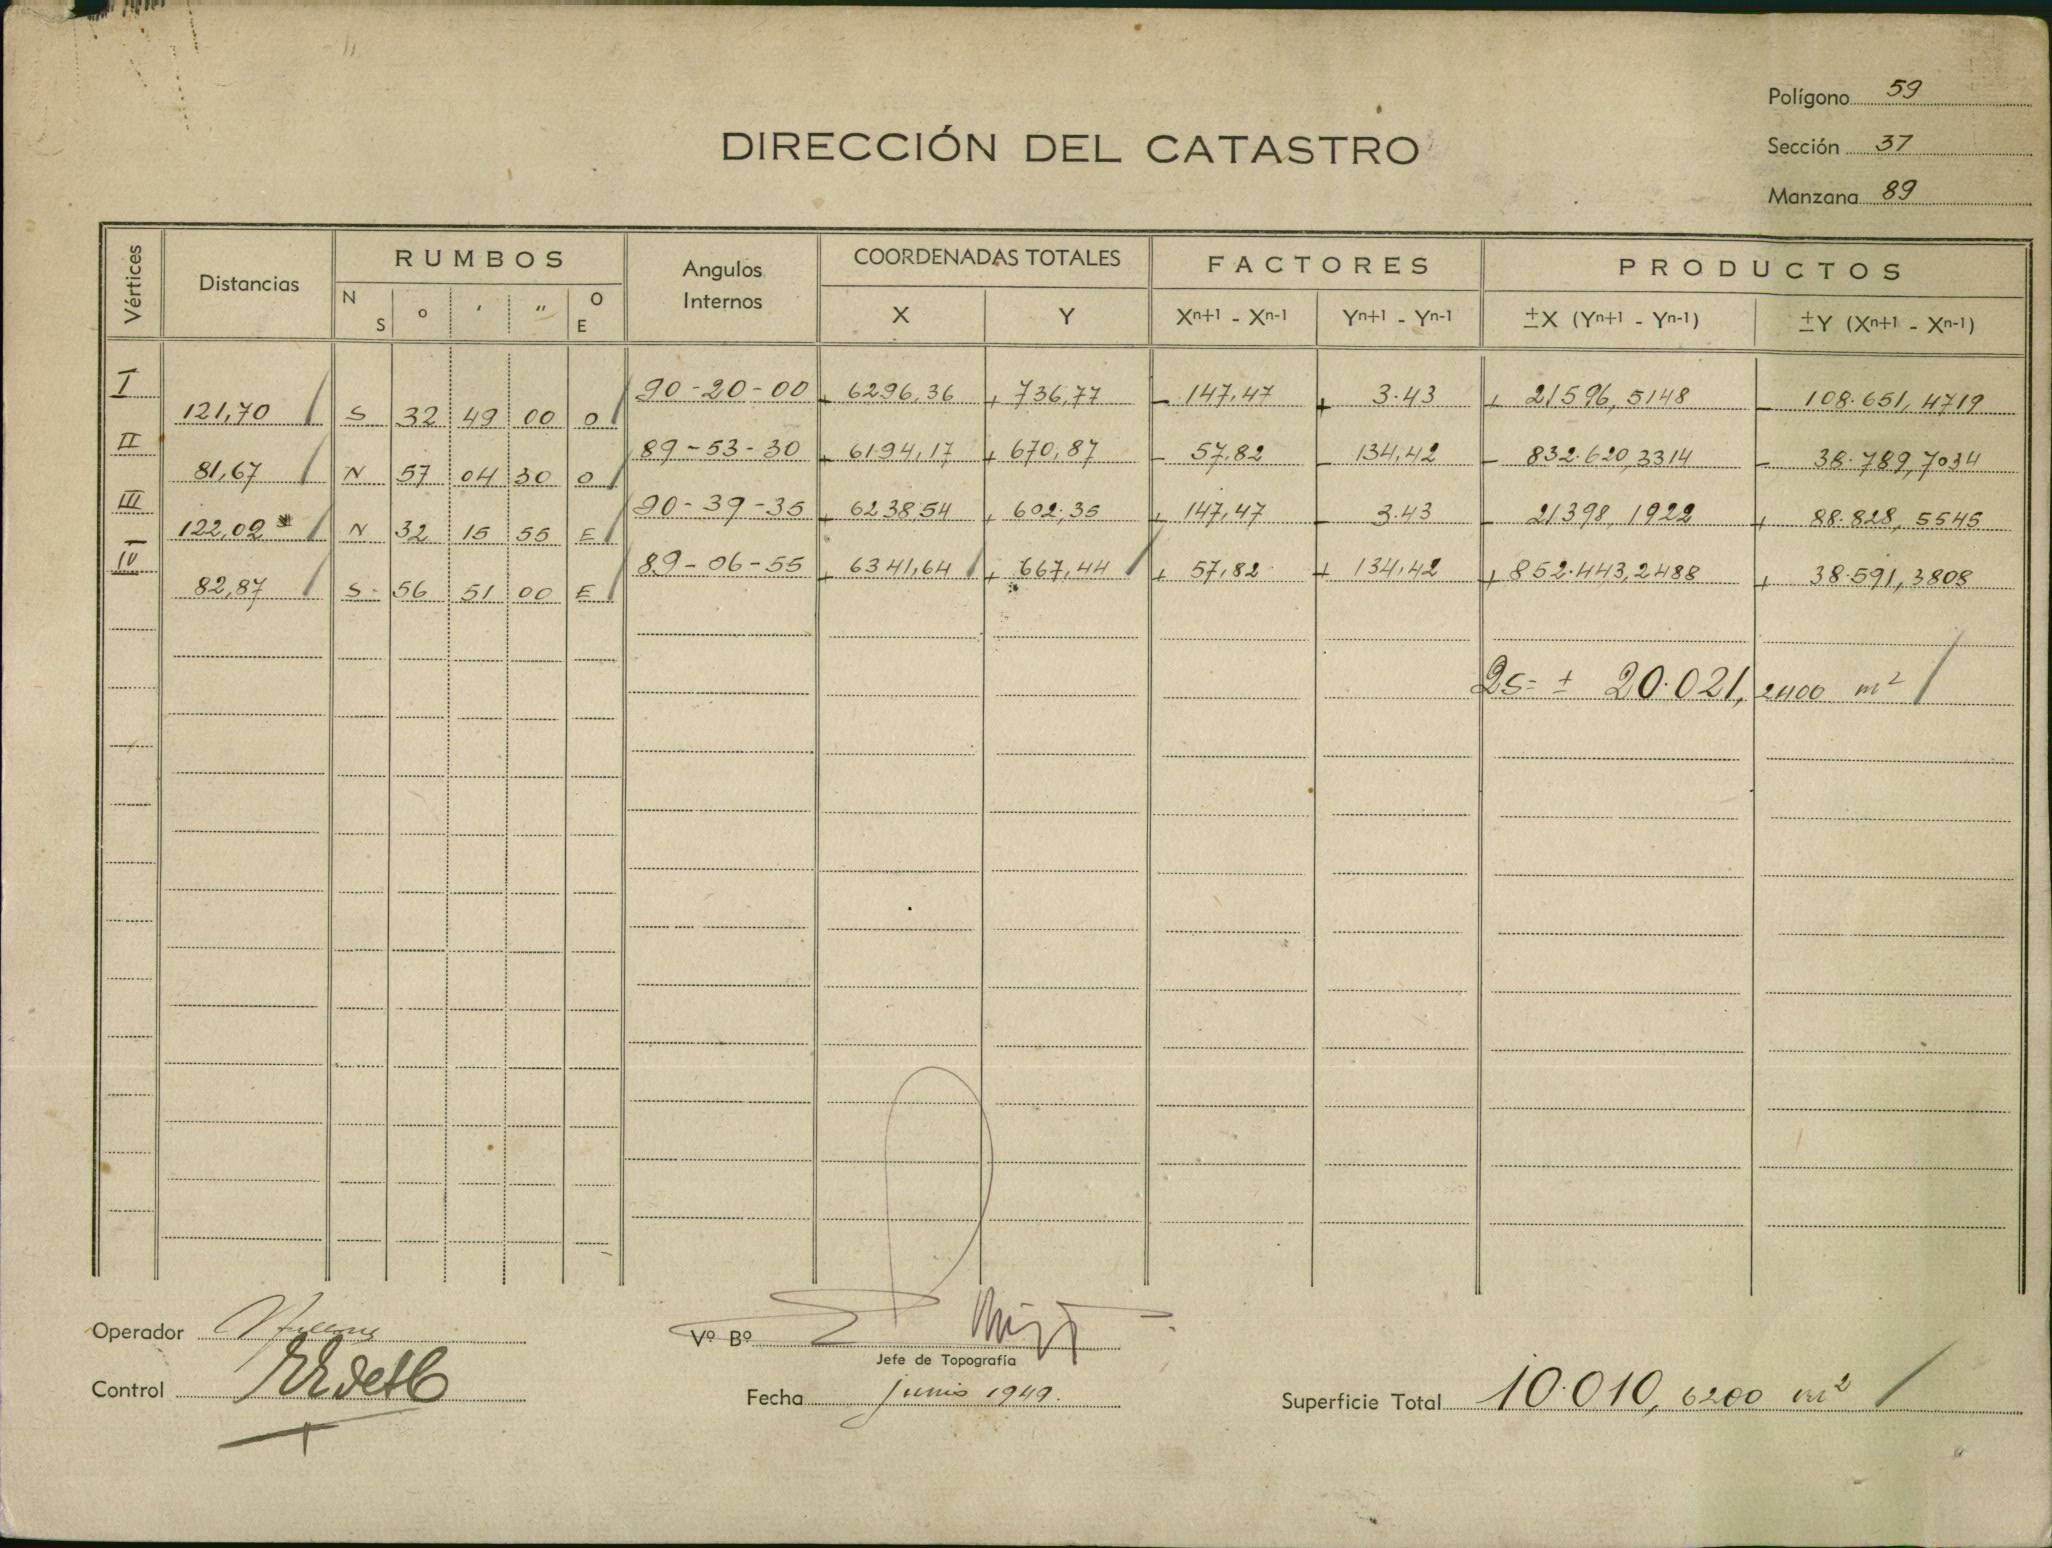 Polígono 59
DIRECCIÓN DEL CATASTRO
Sección 37
Manzana 89
Vértices Distancias RUMBOS Angulos Internos COORDENADAS TOTALES FACTORES PRODUCTOS
N S º ' " O E X Y Xⁿ⁺¹ - Xⁿ⁻¹ Yⁿ⁺¹ - Yⁿ⁻¹ ±X (Yⁿ⁺¹ - Yⁿ⁻¹) ±Y (Xⁿ⁺¹ - Xⁿ⁻¹)
I 90-20-00 + 6296,36 + 736,77 - 147,47 + 3.43 + 21596,5148 - 108.651,4719
121,70 S 32 49 00 O
II 89-53-30 + 6194,17 + 670,87 - 57,82 - 134,42 - 832.620,3314 - 38.789,7034
81,67 N 57 04 30 O
III 90-39-35 + 6238,54 + 602,35 + 147,47 - 3.43 - 21398,1922 + 88.828,5545
122,02 N 32 15 55 E
IV 89-06-55 + 6341,64 + 667,44 + 57,82 + 134,42 + 852.443,2488 + 38.591,3808
82,87 S 56 51 00 E
2S= ± 20.021,2400 m²
Operador
Vº Bº
Jefe de Topografía
Control
Fecha junio 1949.
Superficie Total 10.010,6200 m²